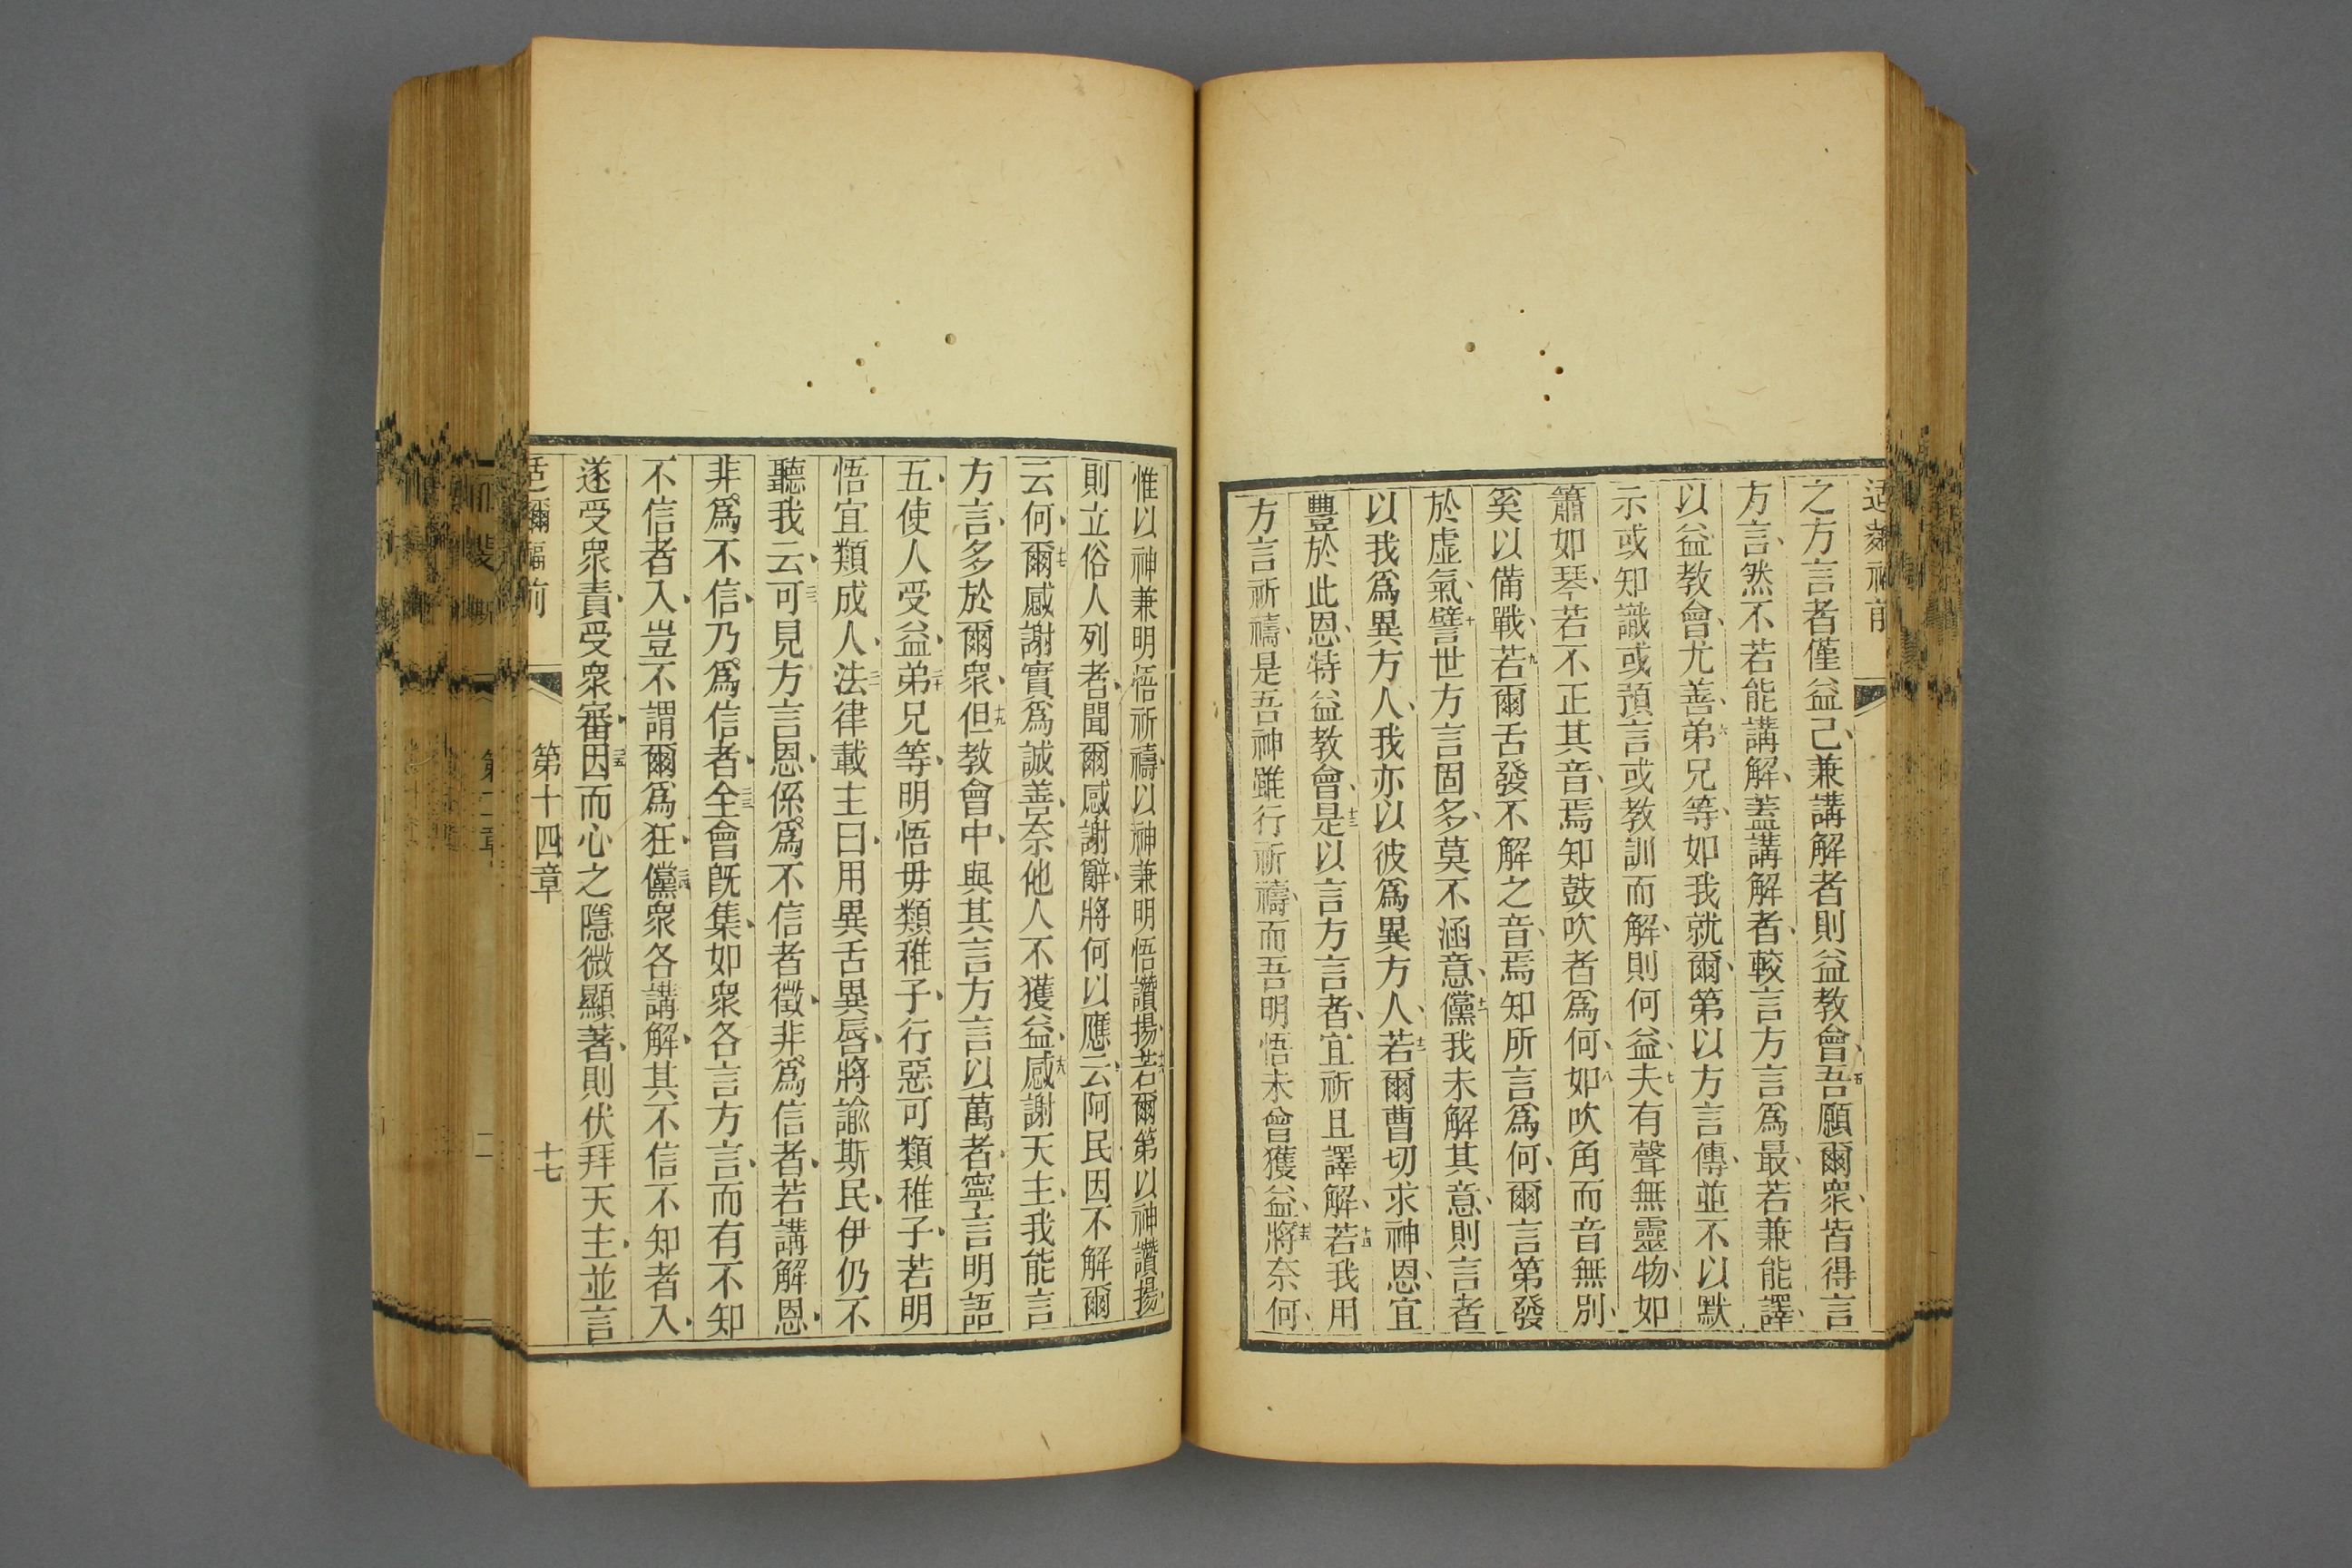 之方言者僅益己、兼講解者則益教會、五吾願爾衆、皆得言
方言、然不若能講解、蓋講解者、較言方言爲最、若兼能譯、
以益教會、尤善、六弟兄等、如我就爾、第以方言傳、並不以默
示或知識或預言或教訓而解、則何益、七夫有聲無靈物、如
簫如琴、若不正其音、焉知鼓吹者爲何、八如吹角而音無別、
奚以備戰、九若爾舌發不解之音、焉知所言爲何、爾言第發
於虛氣、十譬世方言固多、莫不涵意、十一儻我未解其意、則言者
以我爲異方人、我亦以彼爲異方人、十二若爾曹切求神恩、宜
豐於此恩、特益教會、十三是以言方言者、宜祈且譯解、十四若我用
方言祈禱、是吾神雖行祈禱、而吾明悟未曾獲益、十五將奈何、
惟以神兼明悟祈禱、以神兼明悟讚揚、十六若爾第以神讚揚、
則立俗人列者、聞爾感謝辭、將何以應云阿民、因不解爾
云何、十七爾感謝實爲誠善、奈他人不獲益、十八感謝天主、我能言
方言、多於爾衆、十九但教會中、與其言方言以萬者、寧言明語
五、使人受益、二十弟兄等、明悟毋類稚子、行惡可類稚子、若明
悟宜類成人、二一法律載主曰、用異舌異唇、將諭斯民、伊仍不
聽我云、二二可見方言恩、係爲不信者徵、非爲信者、若講解恩、
非爲不信、乃爲信者、二三全會旣集、如衆各言方言、而有不知
不信者入、豈不謂爾爲狂、二四儻衆各講解、其不信不知者入、
遂受衆責、受衆審、二五因而心之隱微顯著、則伏拜天主、並言
第十四章
十七